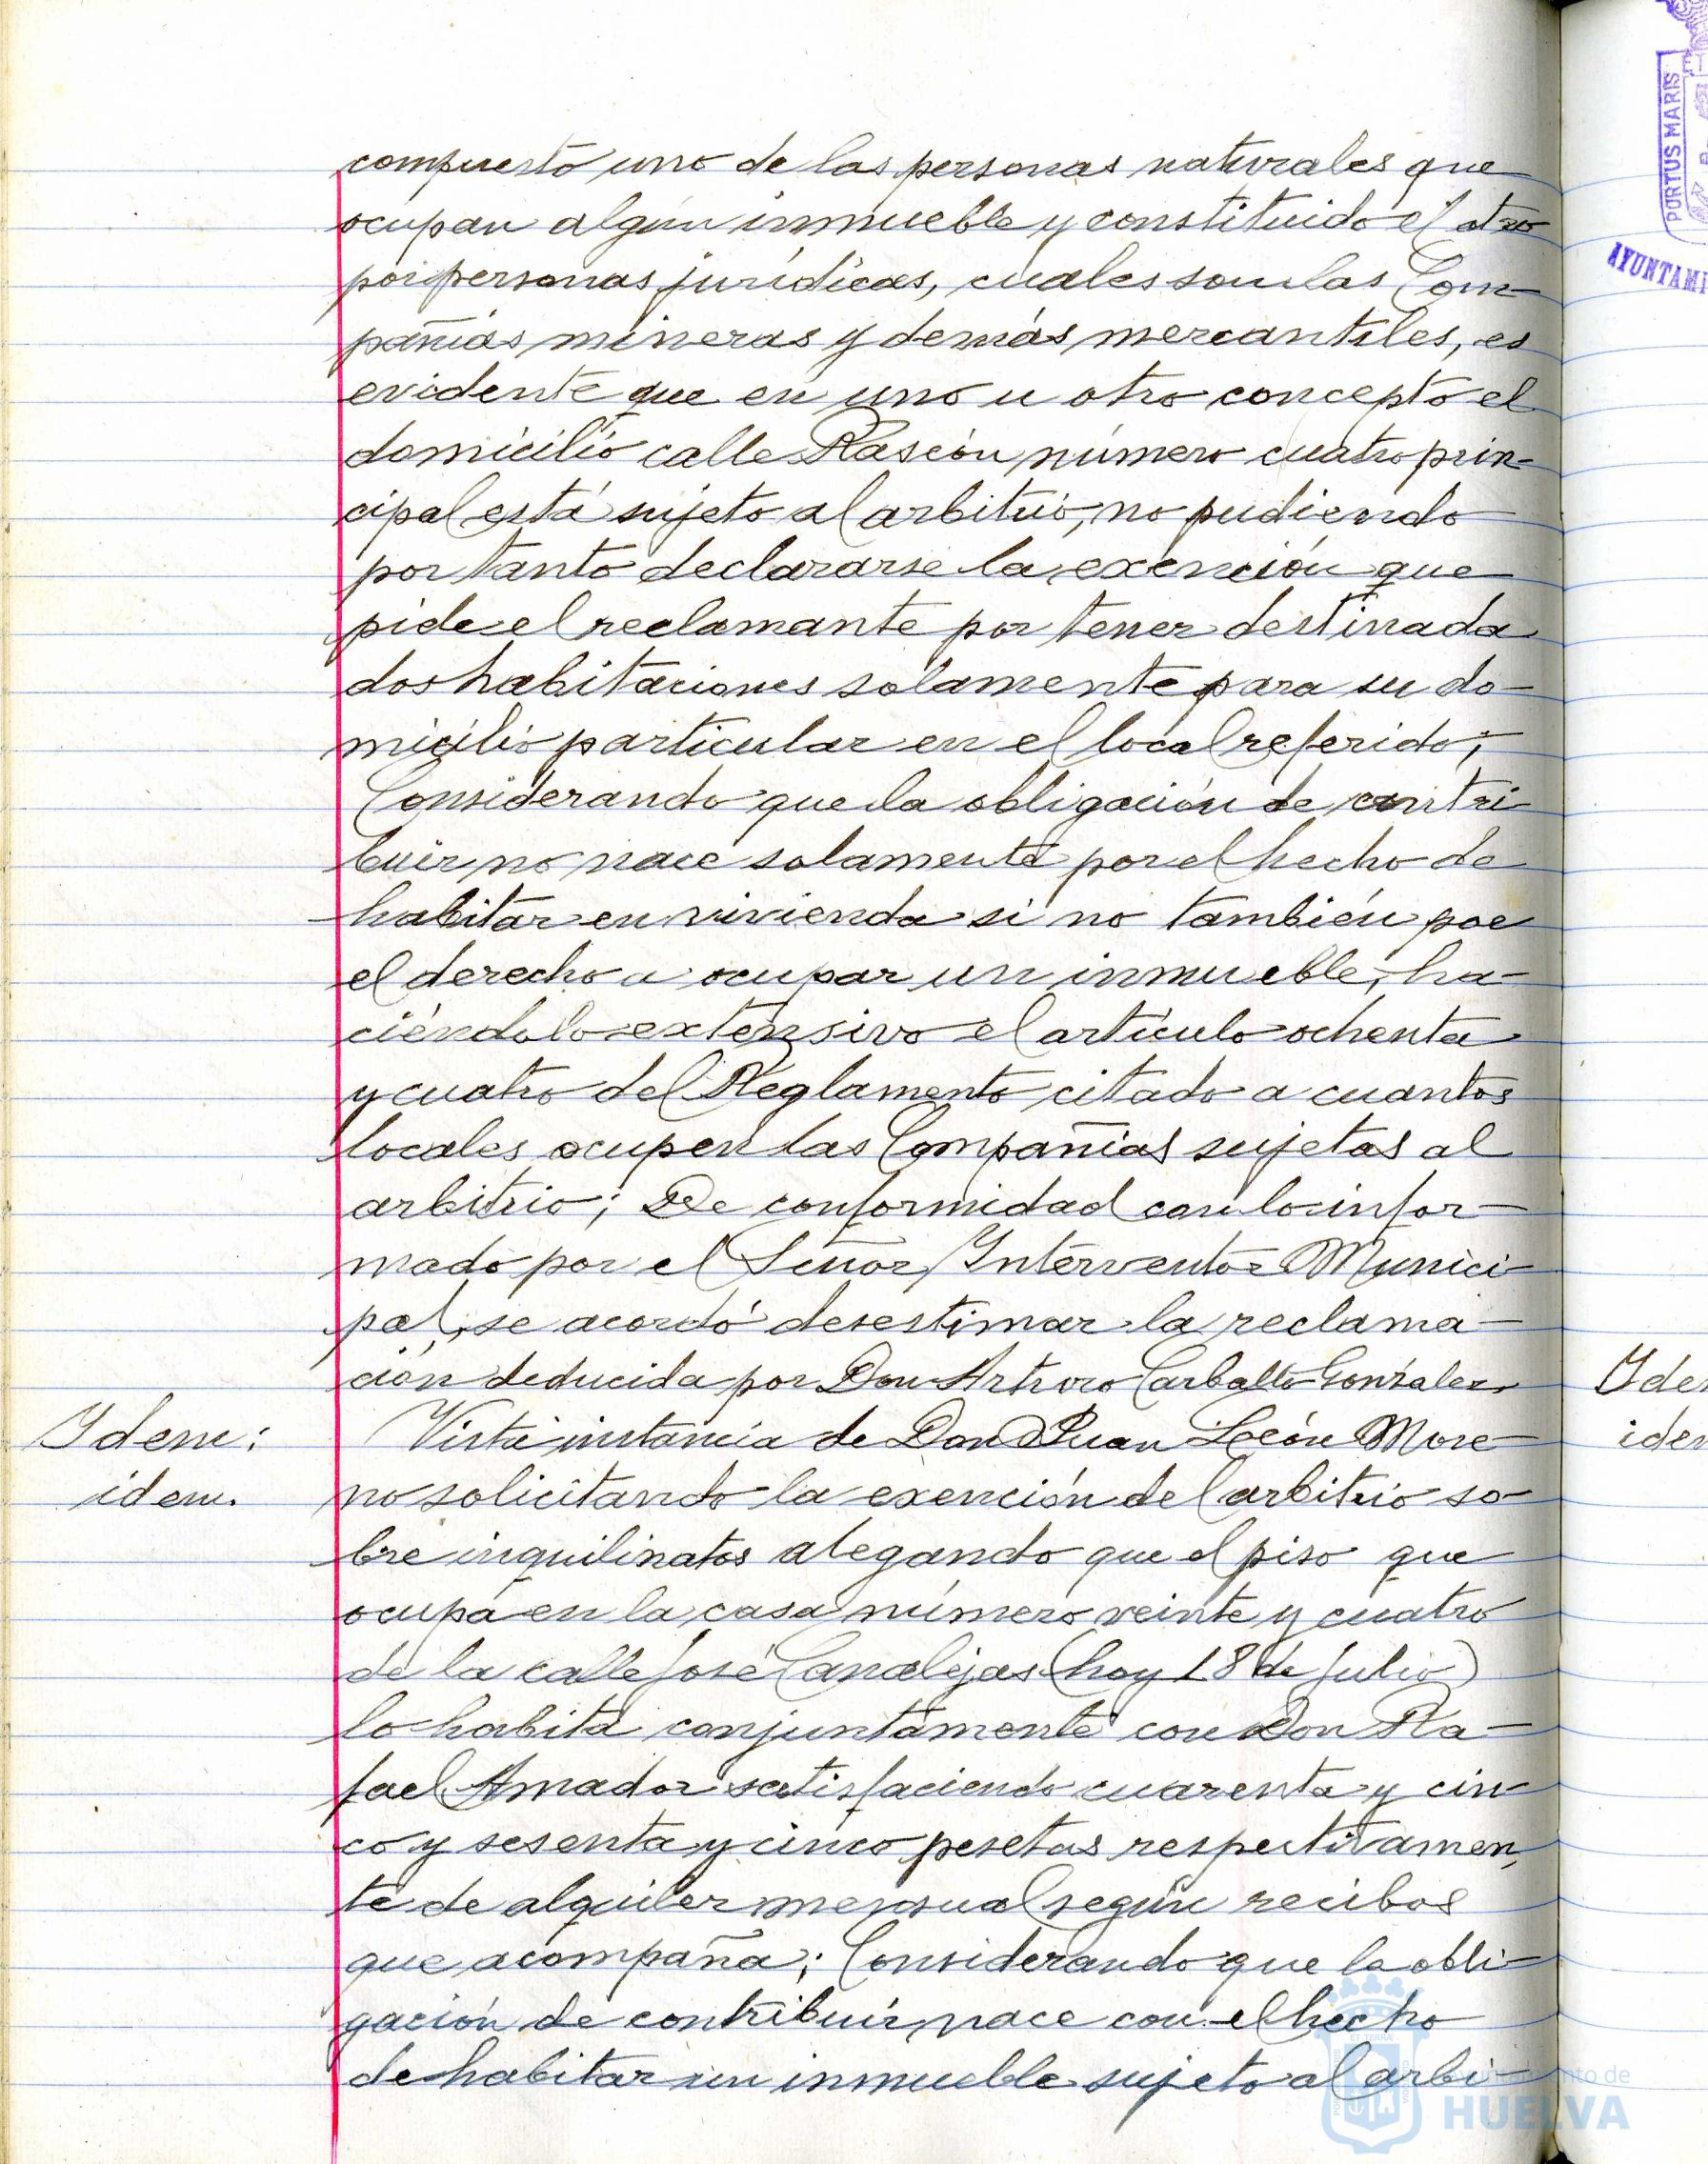 compuesto uno de las personas naturales que
ocupan algún inmueble y constituido el otro
por personas jurídicas, cuales son las Com-
pañías mineras y demás mercantiles, es
evidente que en uno u otro concepto el
domicilio calle Rascón número cuatro prin-
cipal está sujeto al arbitrio, no pudiendo
por tanto declararse la exención que
pide el reclamante por tener destinada
dos habitaciones solamente para su do-
micilio particular en el local referido;
Considerando que la obligación de contri-
buir no nace solamente por el hecho de
habitar en vivienda si no también por
el derecho a ocupar un inmueble, ha-
ciéndolo extensivo el artículo ochenta
y cuatro del Reglamento citado a cuantos
locales ocupen las Compañías sujetas al
arbitrio; De conformidad con lo infor-
mado por el Señor Interventor Munici-
pal, se acordó desestimar la reclama-
ción deducida por Don Arturo Carballo González.
Idem:
idem.
Vista instancia de Don Juan León More-
no solicitando la exención del arbitrio so-
bre inquilinatos alegando que el piso que
ocupa en la casa número veinte y cuatro
de la calle José Canalejas (hoy 18 de Julio)
lo habita conjuntamente con Don Ra-
fael Amador satisfaciendo cuarenta y cin-
co y sesenta y cinco pesetas respectivamen-
te de alquiler mensual según recibos
que acompaña; Considerando que la obli-
gación de contribuir nace con el hecho
de habitar un inmueble sujeto al arbi-
PORTUS MARIS
AYUNTAMI
Ide
iden
HUELVA